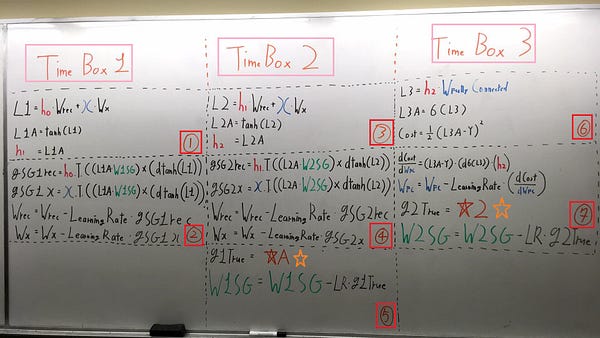 Time Box 1
L1 = h0·Wrec + X·Wx
L1A = tanh(L1)
h1 = L1A
①
gSG1rec = h0.T((L1A·W1SG)×(dtanh(L1))
gSG1x = X.T((L1A·W1SG)×(dtanh(L1))
Wrec = Wrec - LearningRate·gSG1rec
Wx = Wx - LearningRate·gSG1x
②
Time Box 2
L2 = h1·Wrec + X·Wx
L2A = tanh(L2)
h2 = L2A
③
gSG2rec = h1.T((L2A·W2SG)×dtanh(L2))
gSG2x = X.T((L2A·W2SG)×dtanh(L2))
Wrec = Wrec - LearningRate·gSG2rec
Wx = Wx - LearningRate·gSG2x
④
g1True = ☆A☆
W1SG = W1SG - LR·g1True
⑤
Time Box 3
L3 = h2 Wfully Connected
L3A = σ(L3)
Cost = ½(L3A-Y)²
⑥
dCost/dWfc = (L3A-Y)·(dσ(L3))·(h2)
Wfc = Wfc - LearningRate·(dCost/dWfc)
g2True = ☆2☆
⑦
W2SG = W2SG - LR·g2True